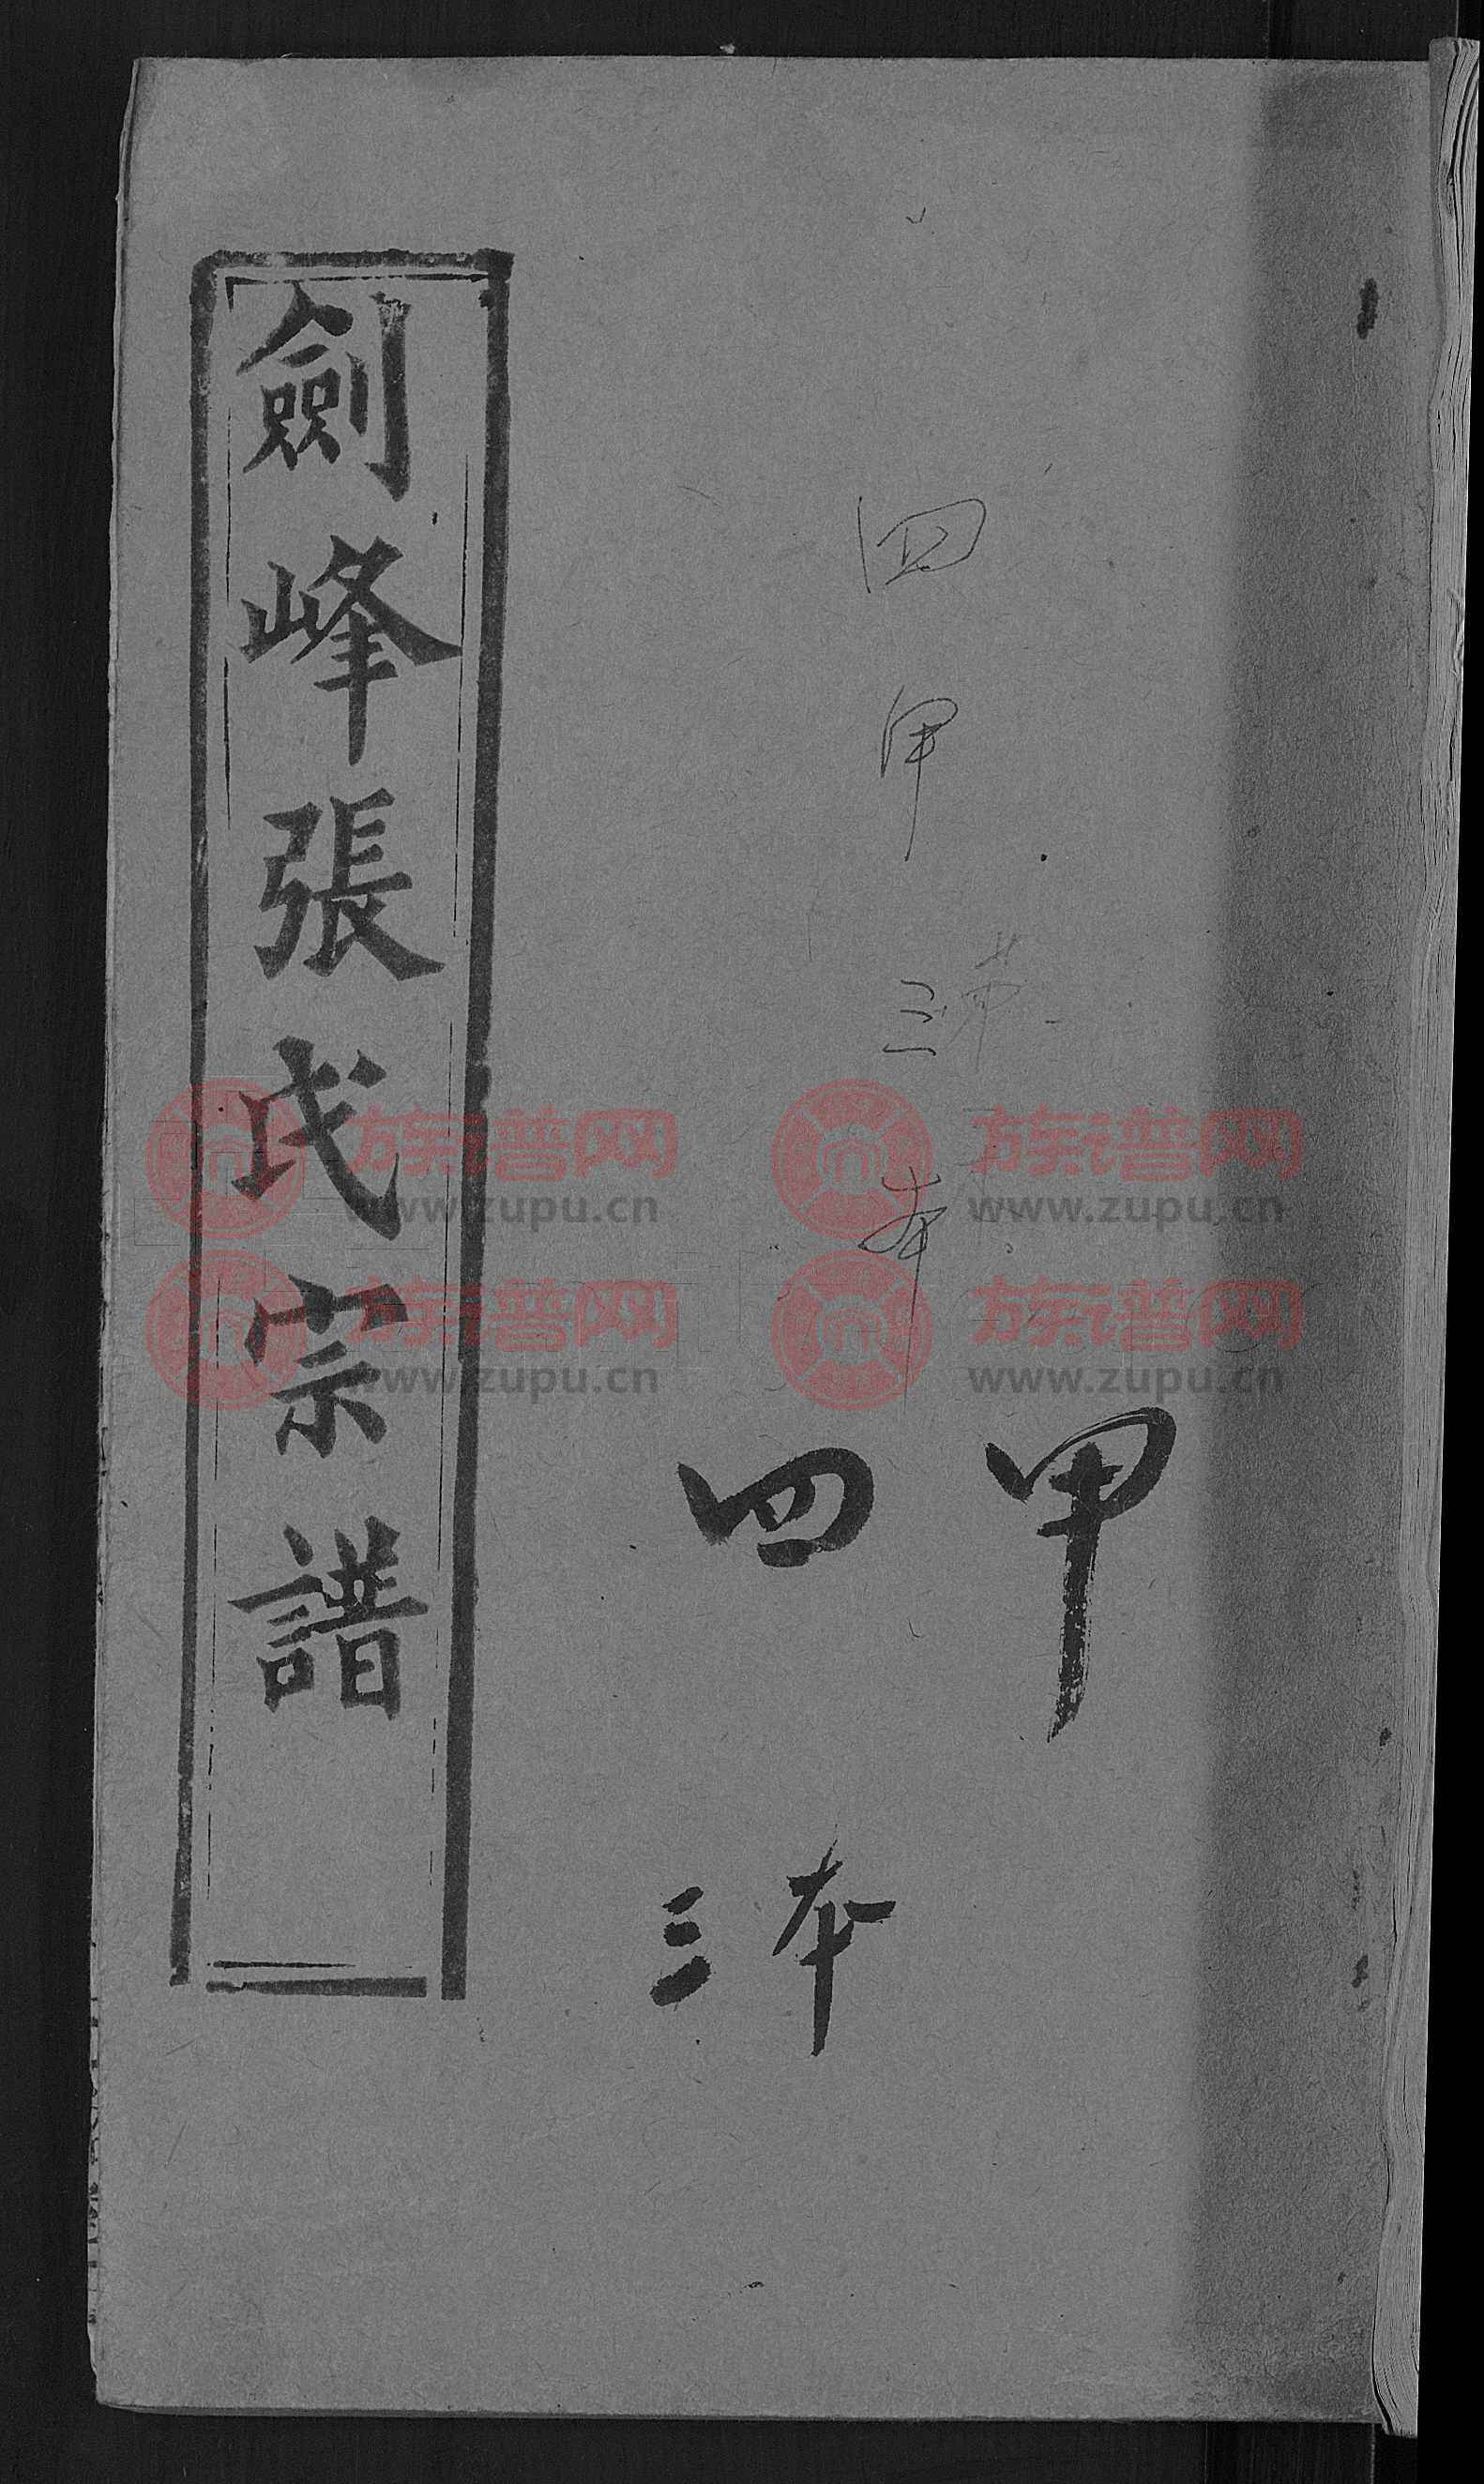 劍峰張氏宗譜
四甲三本
甲
四
本
三
族谱网
www.zupu.cn
族谱网
www.zupu.cn
族谱网
www.zupu.cn
族谱网
www.zupu.cn